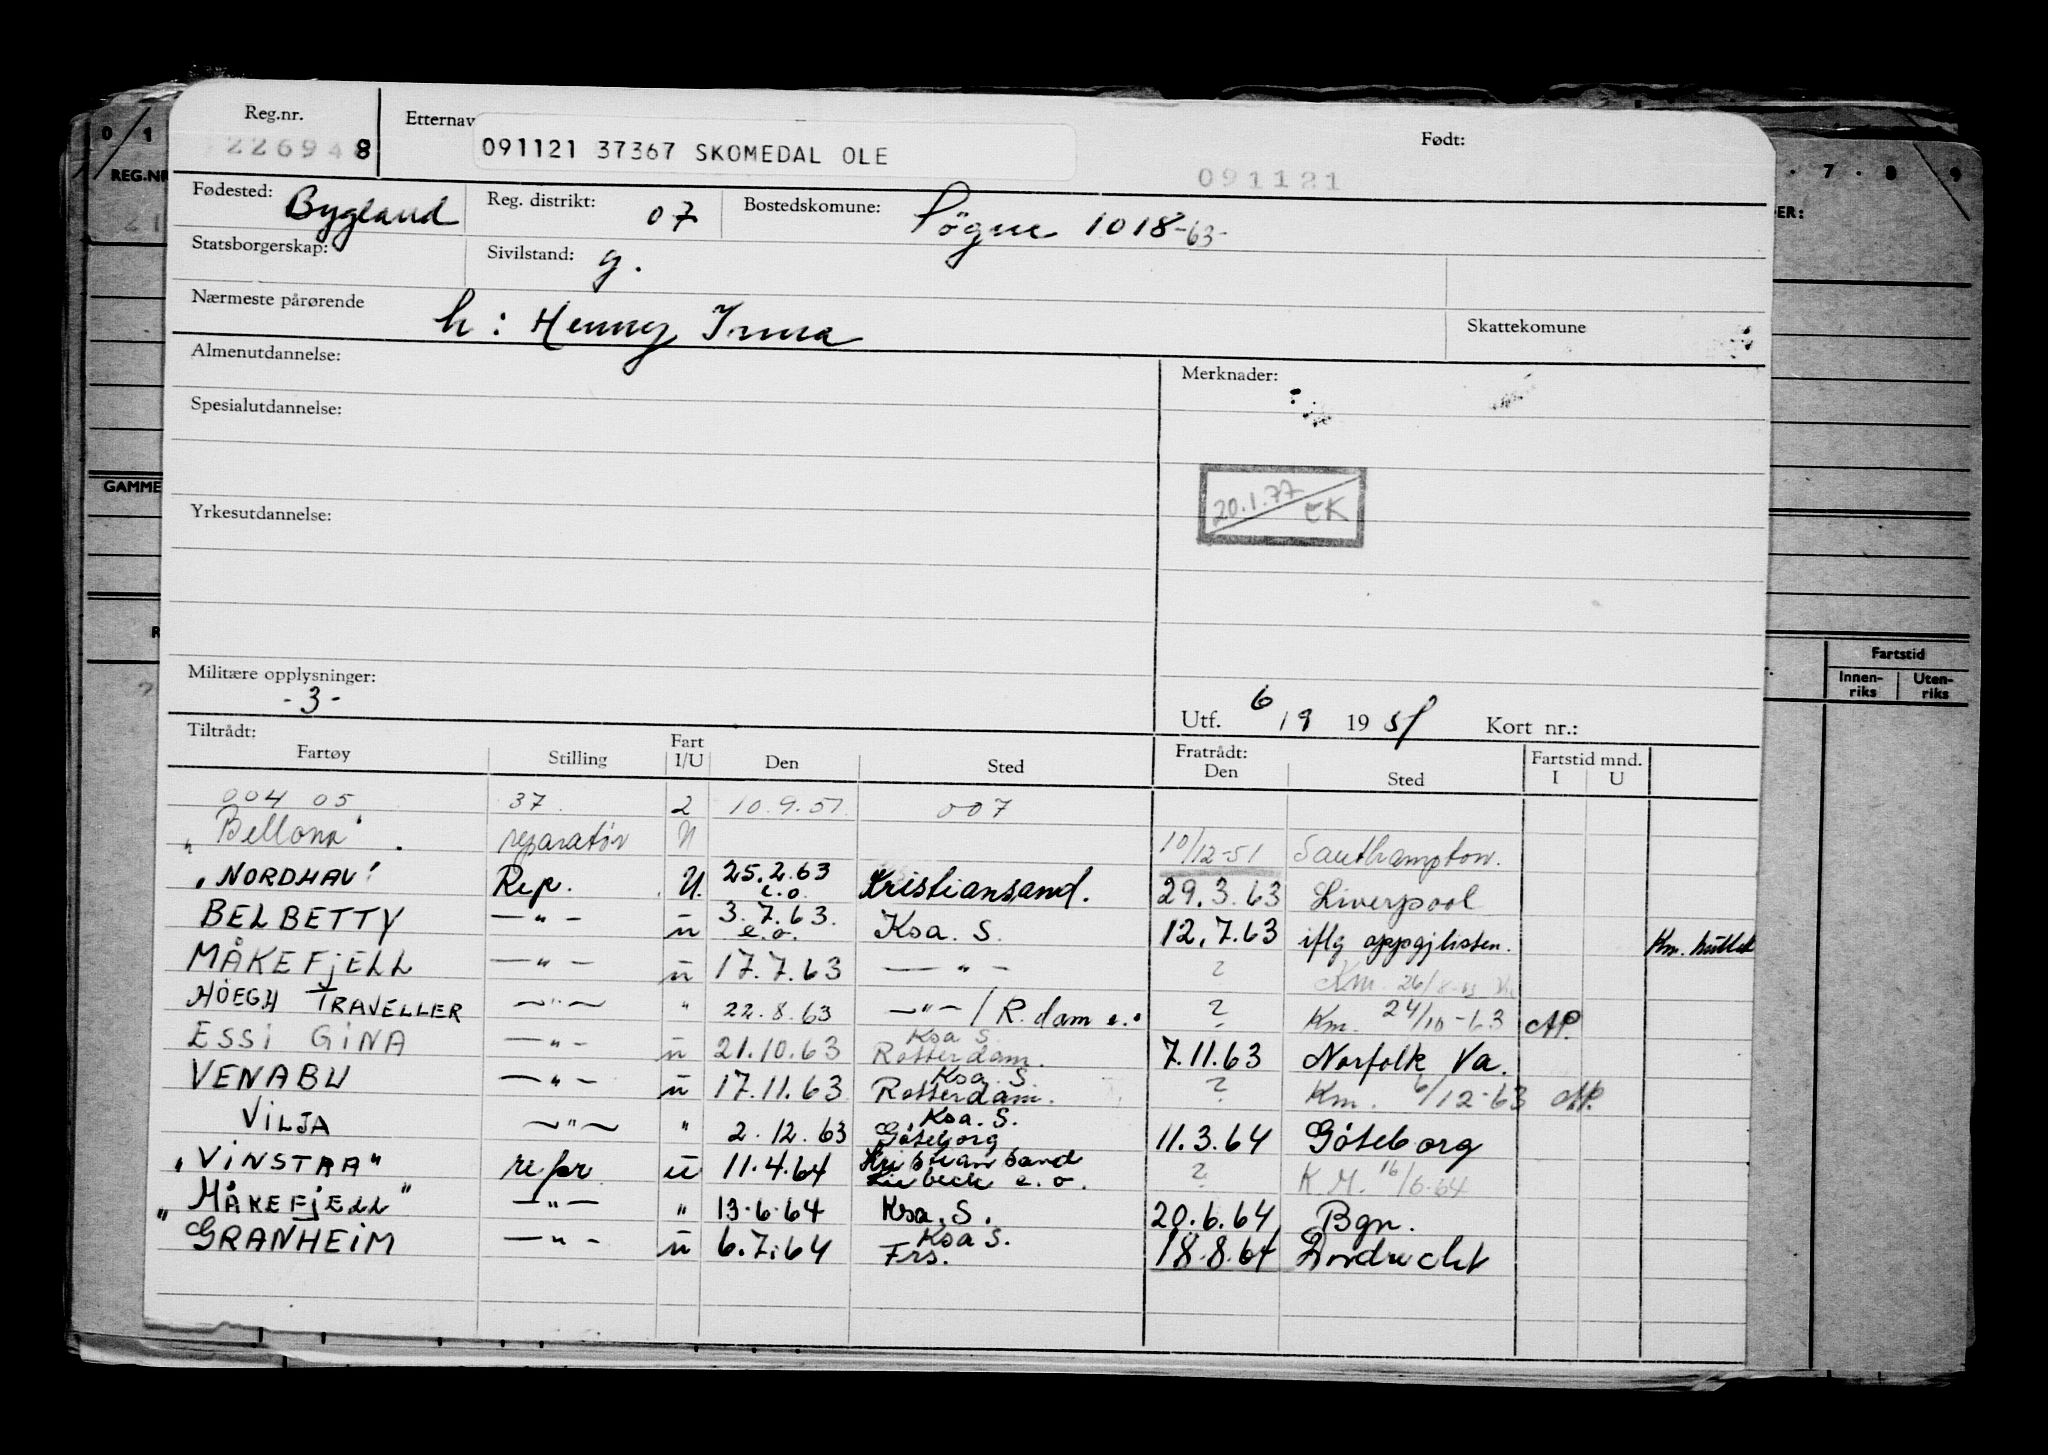 Reg.nr. Etternav Født:
226948 091121 37367 SKOMEDAL OLE 091121
Fødested: Bygland Reg. distrikt: 07 Bostedskomune: Søgne 1018-63-
Statsborgerskap: Sivilstand: g.
Nærmeste pårørende h: Henny Irma Skattekomune
Almenutdannelse: Merknader:
Spesialutdannelse:
20.1.77 EK
Yrkesutdannelse:
Militære opplysninger: -3-
Utf. 6/9 1951 Kort nr.:
Tiltrådt: Fartøy Stilling Fart I/U Den Sted Fratrådt: Den Sted Fartstid mnd. I U
004 05 37 2 10.9.51 007
"Bellona" reparatør U 10/12-51 Southampton.
"NORDHAV" Rep. U. 25.2.63 e.o. Kristiansand. 29.3.63 Liverpool
BELBETTY —"— u 3.7.63. e.o. Ksa. S. 12.7.63 iflg oppgj listen. Km.
MÅKEFJELL —"— u 17.7.63 —"— ? Km. 26/8-63
HÖEGH TRAVELLER —"— " 22.8.63 —"—/R.dam e.o ? Km. 24/10-63 AP.
ESSI GINA —"— u 21.10.63 Ksa S. Rotterdam. 7.11.63 Norfolk Va.
VENABU —"— u 17.11.63 Ksa. S. Rotterdam. ? Km. 6/12-63 AP.
VILJA —"— " 2.12.63 Ksa. S. Göteborg 11.3.64 Göteborg
"VINSTRA" repr u 11.4.64 Kristiansand Lübeck e.o. ? K.M. 16/6-64
"MÅKEFJELL" —"— " 13.6.64 Ksa. S. 20.6.64 Bgn.
"GRANHEIM —"— u 6.7.64 Ksa S. Frs. 18.8.64 Dordrecht
0 1
REG.NR
21
GAMME
R
7 8 9
ER:
Fartstid
Innenriks Utenriks